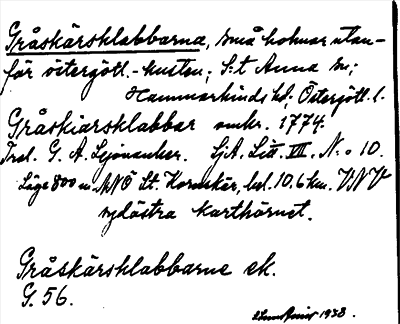 Gråskärsklabbarna, små holmar utan-
för östergötl.-kusten; S:t Anna sn;
Hammarkinds hd; Östergötl. l.
Gråskiärsklabbar omkr. 1774.
Tral. G. A. Lejonanker. SjA. Litt. VII. N:o 10.
Läge 800 m NNÖ St. Kornskär, bel. 10.6 km. VNV
sydöstra karthörnet.
Gråskärsklabbarne ek.
G. 56.
1938.